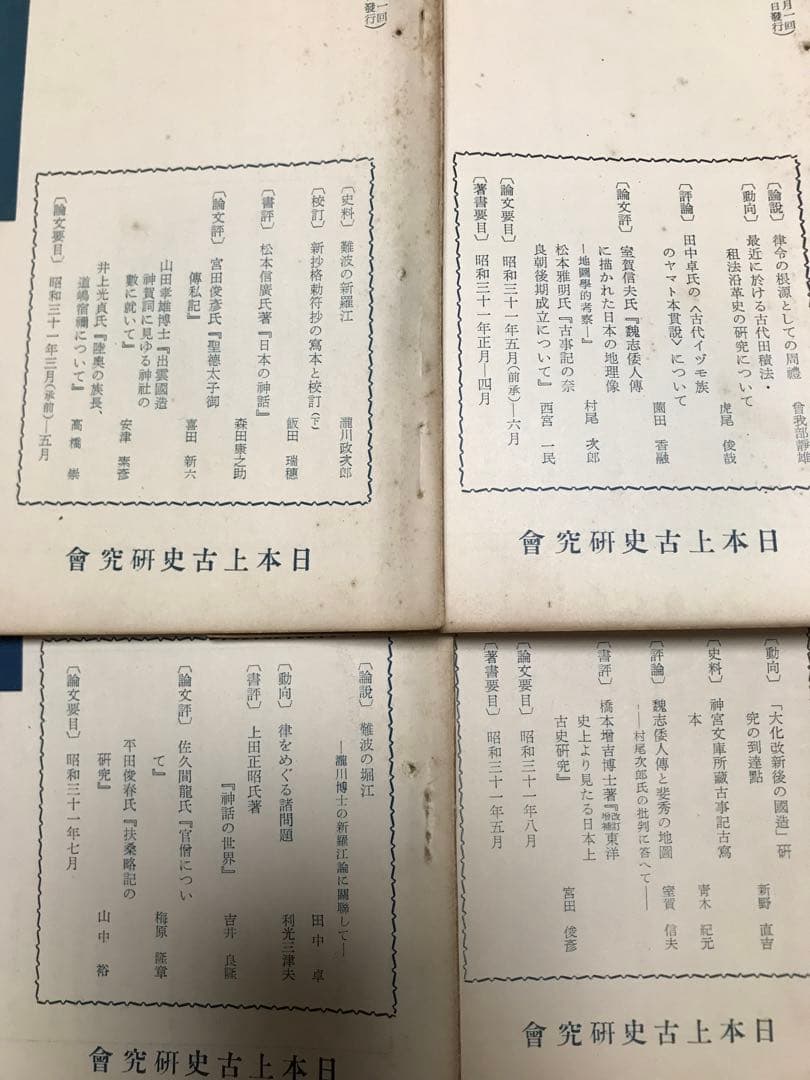 月一回
日發行)
〔論說〕 律令の根源としての周禮
曾我部靜雄
〔動向〕 最近に於ける古代田積法・
租法沿革史の研究について
虎尾 俊哉
〔評論〕 田中卓氏の〈古代イヅモ族
のヤマト本貫說〉について
薗田 香融
〔論文評〕 室賀信夫氏『魏志倭人傳
に描かれた日本の地理像
―地圖學的考察―』
村尾 次郎
松本雅明氏『古事記の奈
良朝後期成立について』
西宮 一民
〔論文要目〕 昭和三十一年五月(前承)―六月
〔著書要目〕 昭和三十一年正月―四月
日本上古史研究會
一回
發行)
〔史料〕 難波の新羅江
瀧川政次郎
〔校訂〕 新抄格勅符抄の寫本と校訂(下)
飯田 瑞穗
〔書評〕 松本信廣氏著『日本の神話』
森田康之助
〔論文評〕 宮田俊彥氏『聖德太子御
傳私記』
喜田 新六
山田孝雄博士『出雲國造
神賀詞に見ゆる神社の
數に就いて』
安津 素彥
井上光貞氏『陸奥の族長、
道嶋宿禰について』
高橋 崇
〔論文要目〕 昭和三十一年三月(承前)―五月
日本上古史研究會
〔動向〕 「大化改新後の國造」研
究の到達點
新野 直吉
〔史料〕 神宮文庫所藏古事記古寫
本
靑木 紀元
〔評論〕 魏志倭人傳と裴秀の地圖
――村尾次郎氏の批判に答へて――
室賀 信夫
〔書評〕 橋本增吉博士著『改訂增補東洋
史上より見たる日本上
古史硏究』
宮田 俊彥
〔論文要目〕 昭和三十一年八月
〔著書要目〕 昭和三十一年五月
日本上古史研究會
〔論說〕 難波の堀江
―瀧川博士の新羅江論に關聯して―
田中 卓
〔動向〕 律をめぐる諸問題
利光三津夫
〔書評〕 上田正昭氏著
『神話の世界』
吉井 良隆
〔論文評〕 佐久間龍氏『官僧につい
て』
梅原 隆章
平田俊春氏『扶桑略記の
硏究』
山中 裕
〔論文要目〕 昭和三十一年七月
日本上古史研究會